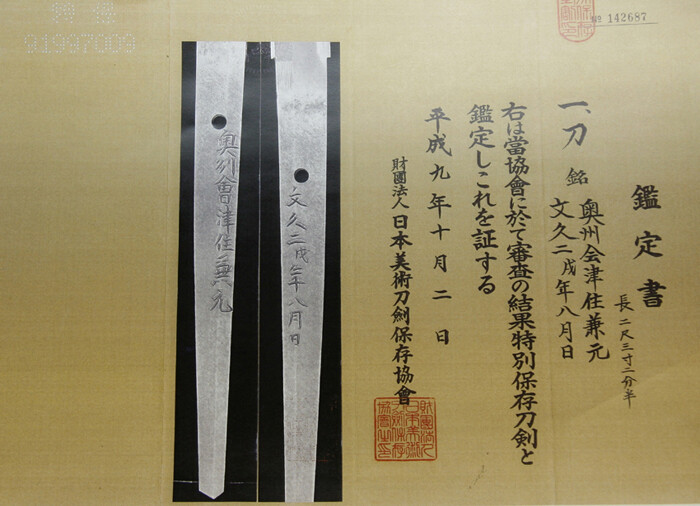 № 142687
鑑定書
一、刀 銘 奥州会津住兼元
文久二戌年八月日
長二尺三寸二分半
右は當協會に於て審査の結果特別保存刀剣と
鑑定しこれを証する
平成九年十月二日
財團法人 日本美術刀劍保存協會
文久二戌年八月日
奥州會津住兼元